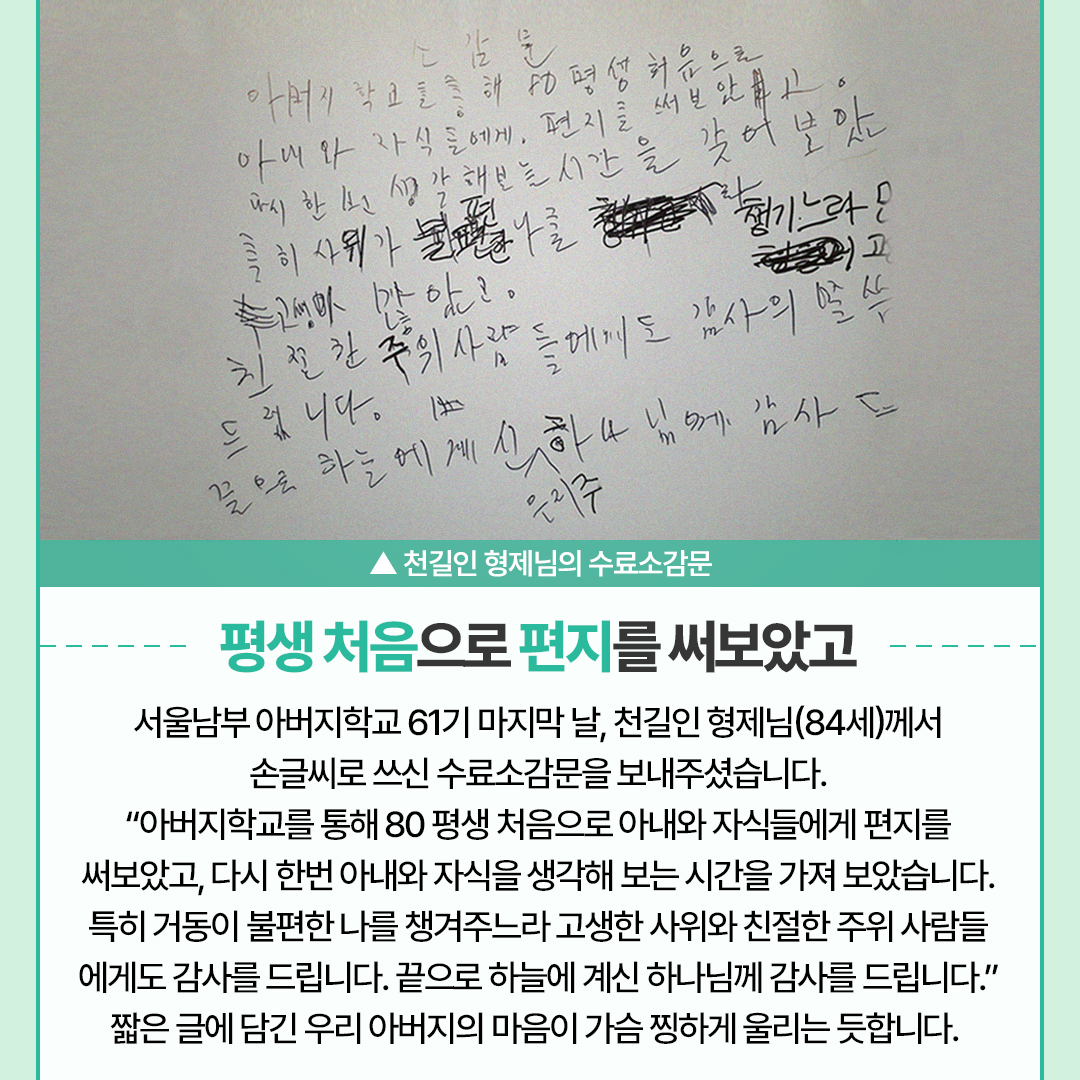 소감문
아버지학교를 통해 80 평생 처음으로
아내와 자식들에게. 편지를 써보았고.
다시 한번 생각해보는 시간을 갖어 보았
특히 사위가 불편한 나를 챙기느라
고생이 많았고.
친절한 주위사람들에게도 감사의 말씀
드립니다.
끝으로 하늘에 계신 하나님께 감사드
은지주
▲ 천길인 형제님의 수료소감문
평생 처음으로 편지를 써보았고
서울남부 아버지학교 61기 마지막 날, 천길인 형제님(84세)께서
손글씨로 쓰신 수료소감문을 보내주셨습니다.
“아버지학교를 통해 80 평생 처음으로 아내와 자식들에게 편지를
써보았고, 다시 한번 아내와 자식을 생각해 보는 시간을 가져 보았습니다.
특히 거동이 불편한 나를 챙겨주느라 고생한 사위와 친절한 주위 사람들
에게도 감사를 드립니다. 끝으로 하늘에 계신 하나님께 감사를 드립니다.”
짧은 글에 담긴 우리 아버지의 마음이 가슴 찡하게 울리는 듯합니다.